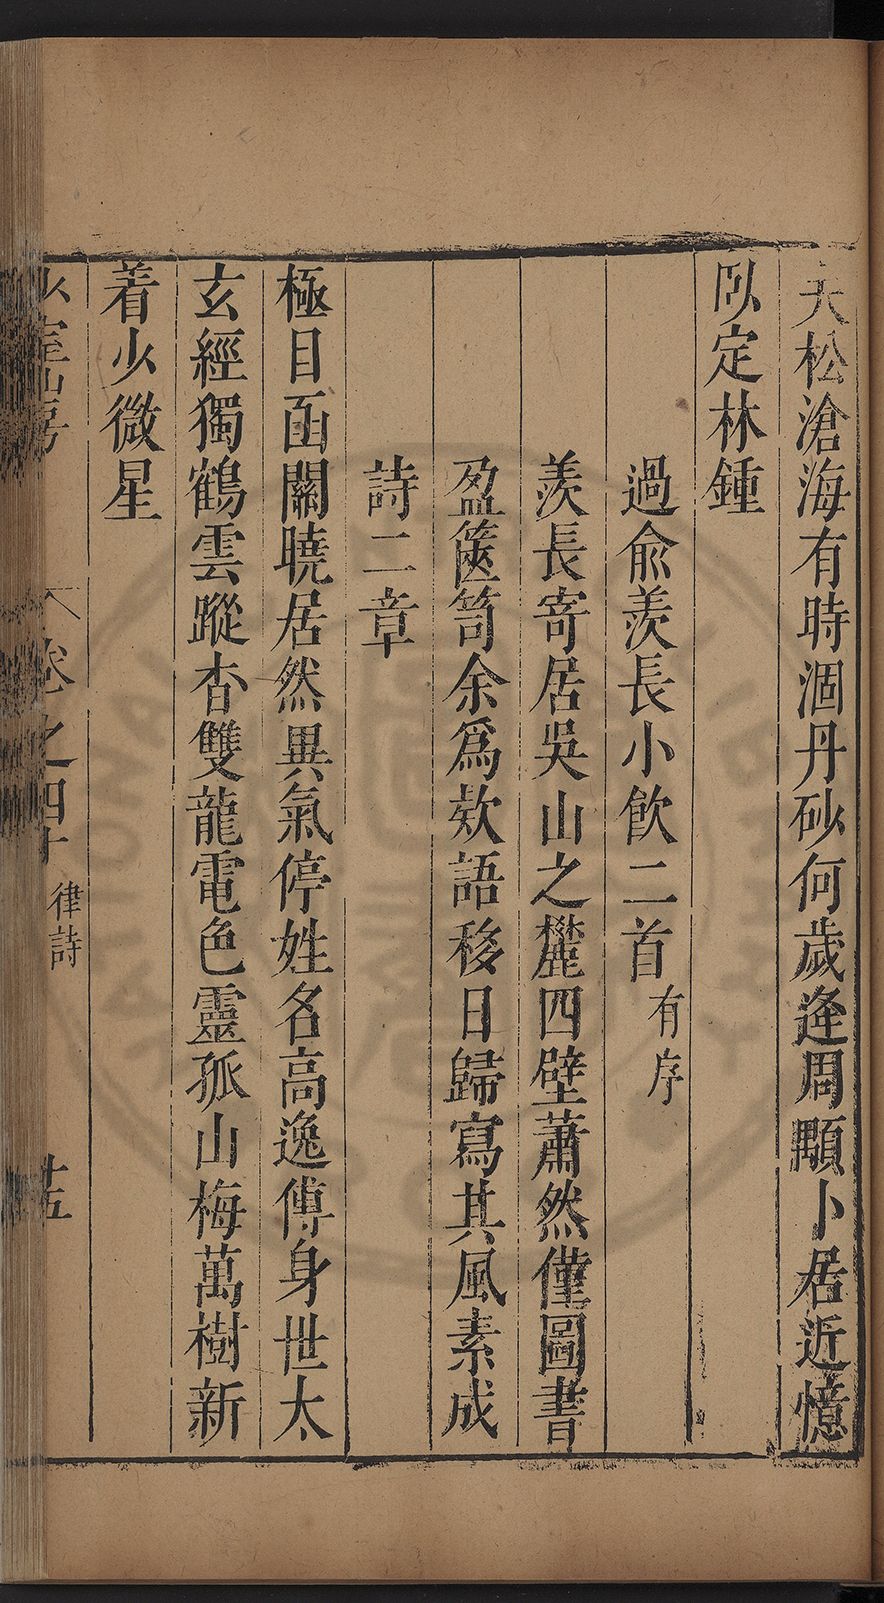 天松滄海有時涸丹砂何歲逢周顒卜居近憶
臥定林鍾
過俞羨長小飲二首有序
羨長寄居吳山之麓四壁蕭然僅圖書
盈篋笥余為欵語移日歸寫其風素成
詩二章
極目函關曉居然異氣停姓名高逸傳身世太
玄經獨鶴雲蹤杳雙龍電色靈孤山梅萬樹新
着少微星
少室山房
卷之四十 律詩
十五